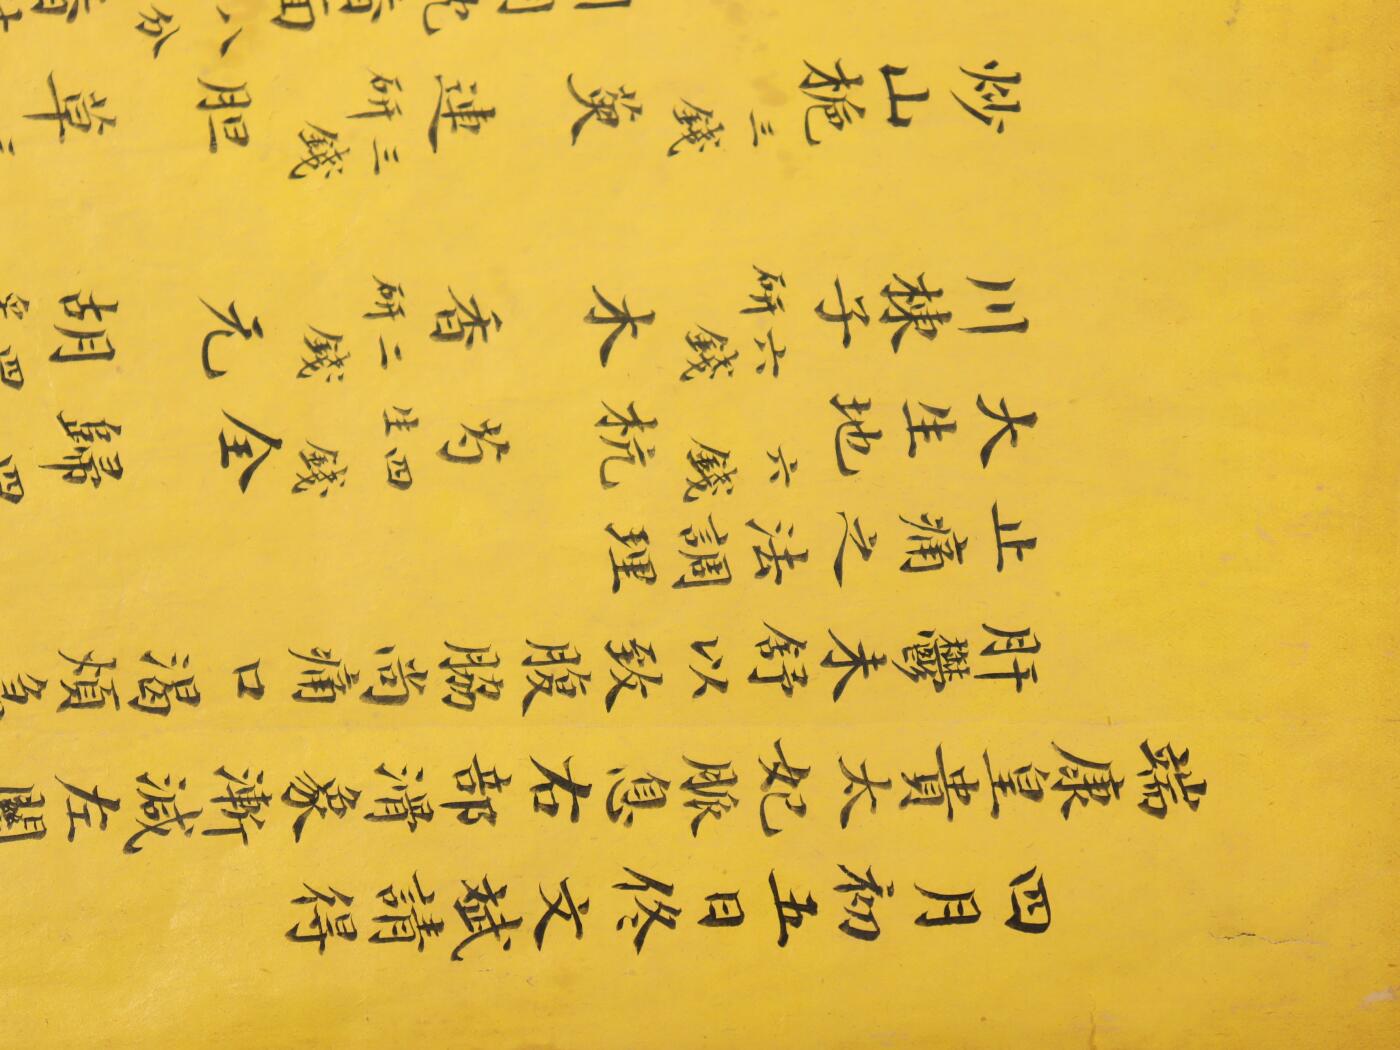 四月初五日佟文斌請得
瑞康皇貴太妃脈息右部滑象漸減左關
肝鬱未舒以致腹脇尚痛口渴煩急
止痛之法調理
大生地六錢 杭芍生四錢 全歸四
川楝子研六錢 木香研二錢 元胡四
炒山梔三錢 萸連研三錢 胆草
八分